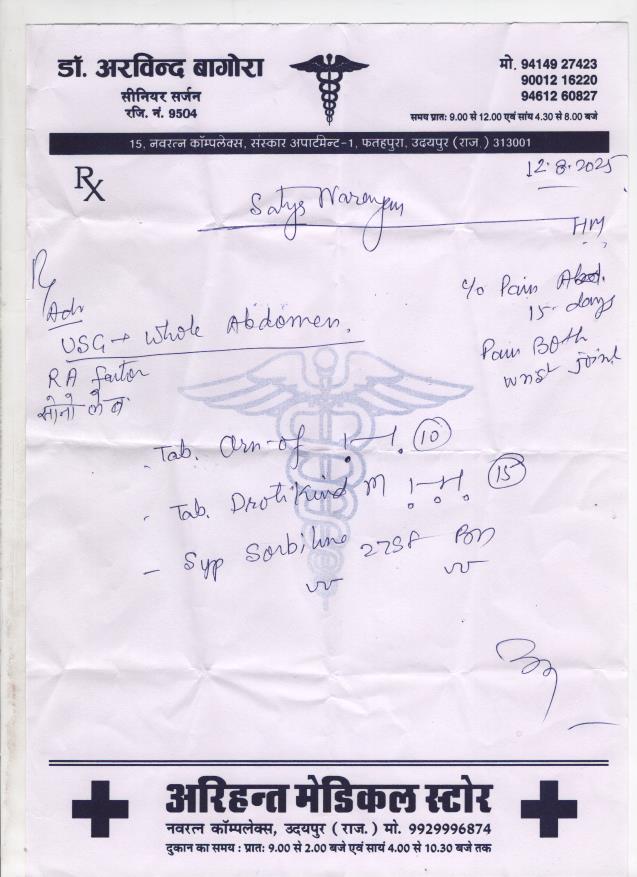 डॉ. अरविन्द बागोरा
सीनियर सर्जन
रजि. नं. 9504
मो. 94149 27423
90012 16220
94612 60827
समय प्रातः 9.00 से 12.00 एवं सांय 4.30 से 8.00 बजे
15, नवरत्न कॉम्पलेक्स, संस्कार अपार्टमेन्ट-1, फतहपुरा, उदयपुर (राज.) 313001
Rx
12.8.2025
Satya Narayan
c/o Pain Abd.
15 days
Pain Both
wrist joint
Adv
USG → Whole Abdomen.
RA factor
सोनो लेब
- Tab. 1-1. (10)
- Tab. Drotikind M 1-1. (15)
- Syp Sorbiline 2TSF
अरिहन्त मेडिकल स्टोर
नवरत्न कॉम्पलेक्स, उदयपुर (राज.) मो. 9929996874
दुकान का समय : प्रातः 9.00 से 2.00 बजे एवं सायं 4.00 से 10.30 बजे तक